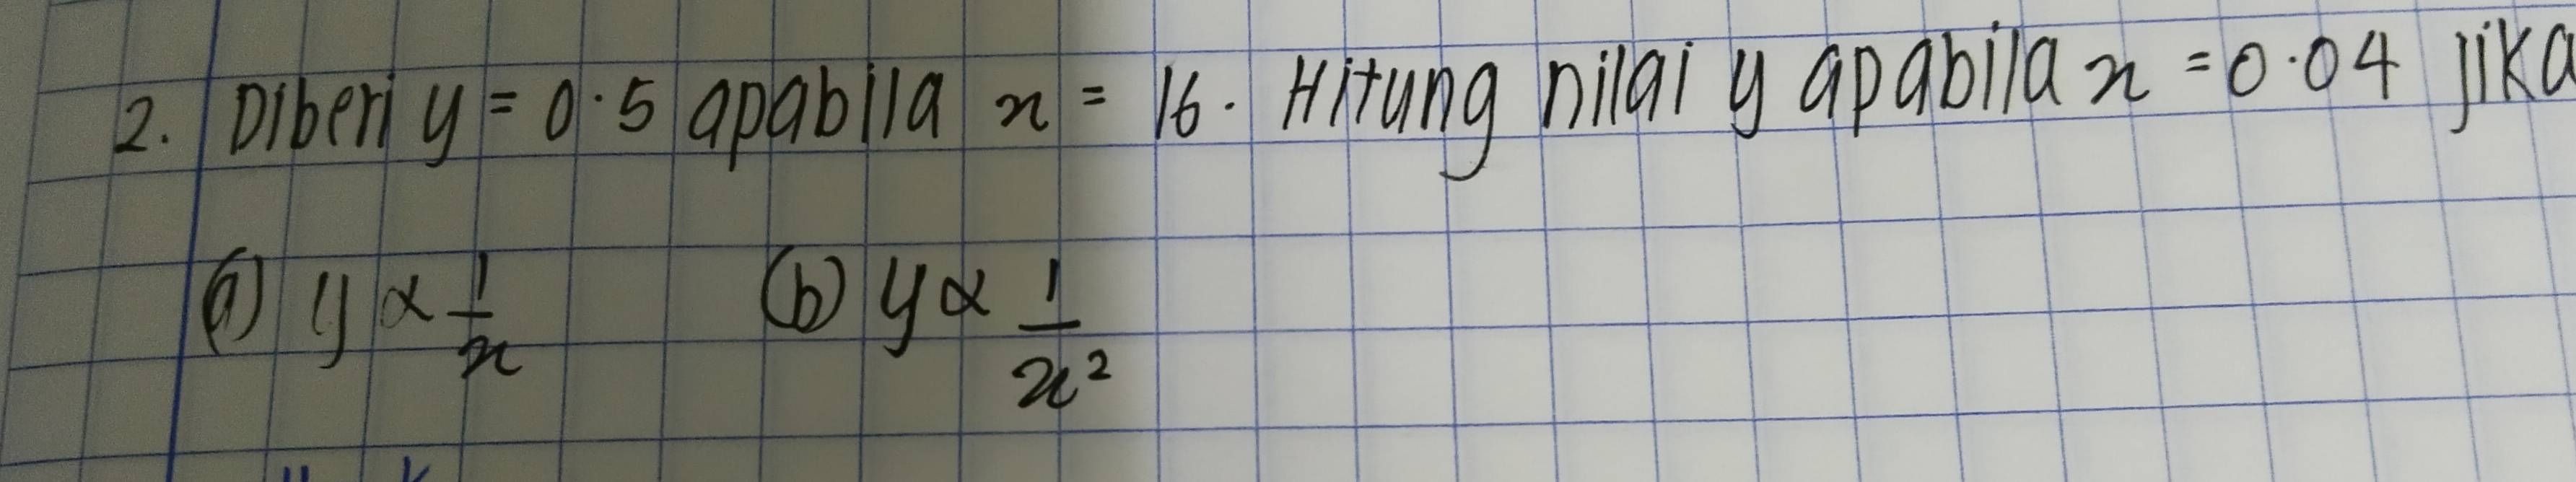 2. Diberi y = 0.5 apabila x = 16. Hitung nilai y apabila x = 0.04 jika
(a) y ∝ 1/x (b) y ∝ 1/x²